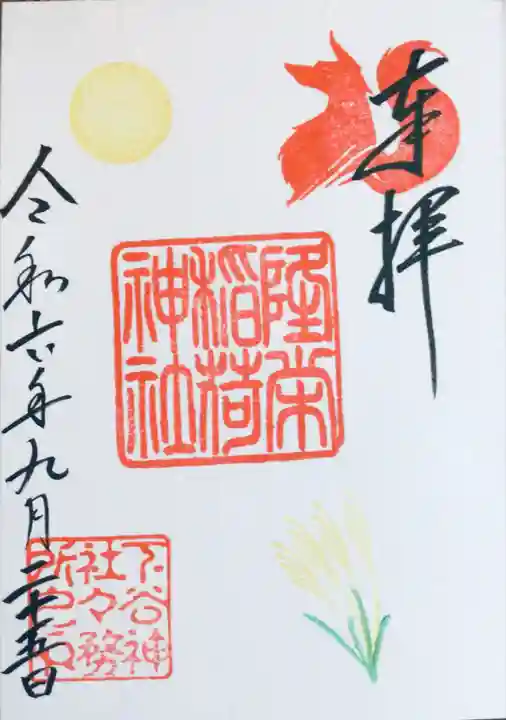 奉拝
隆栄
稲荷
神社
令和六年九月二十五日
下谷神
社々務
所之印